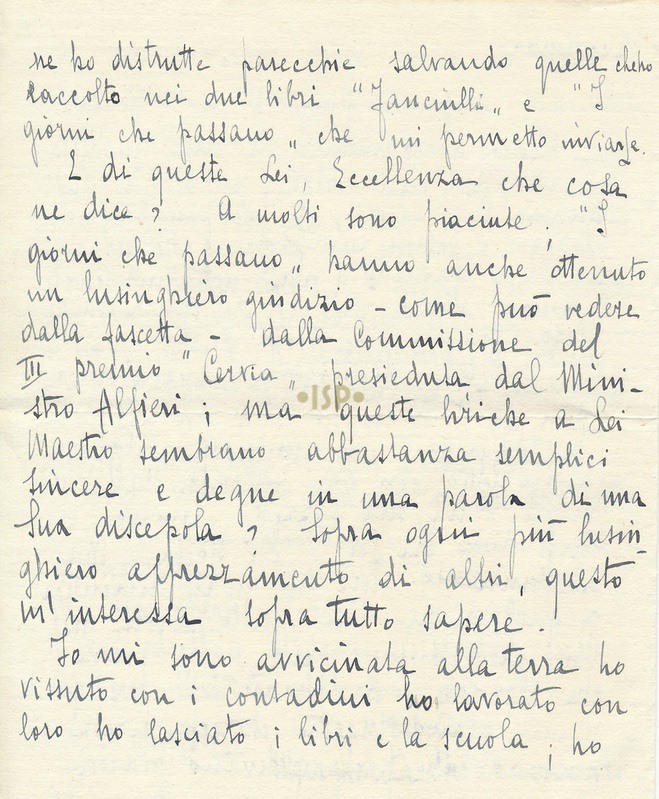 ne ho distrutte parecchie salvando quelle che ho
raccolto nei due libri "Fanciulli„ e "I
giorni che passano„ che mi permetto inviarLe.
E di queste Lei, Eccellenza che cosa
ne dice? A molti sono piaciute. "I
giorni che passano„ hanno anche ottenuto
un lusinghiero giudizio - come può vedere
dalla fascetta - dalla Commissione del
III premio "Cervia„ presieduta dal Mini-
stro Alfieri; ma queste liriche a Lei
Maestro sembrano abbastanza semplici
sincere e degne in una parola di una
Sua discepola? Sopra ogni più lusin-
ghiero apprezzamento di altri, questo
m'interessa sopra tutto sapere.
Io mi sono avvicinata alla terra ho
vissuto con i contadini ho lavorato con
loro ho lasciato i libri e la scuola; ho
•ISP•